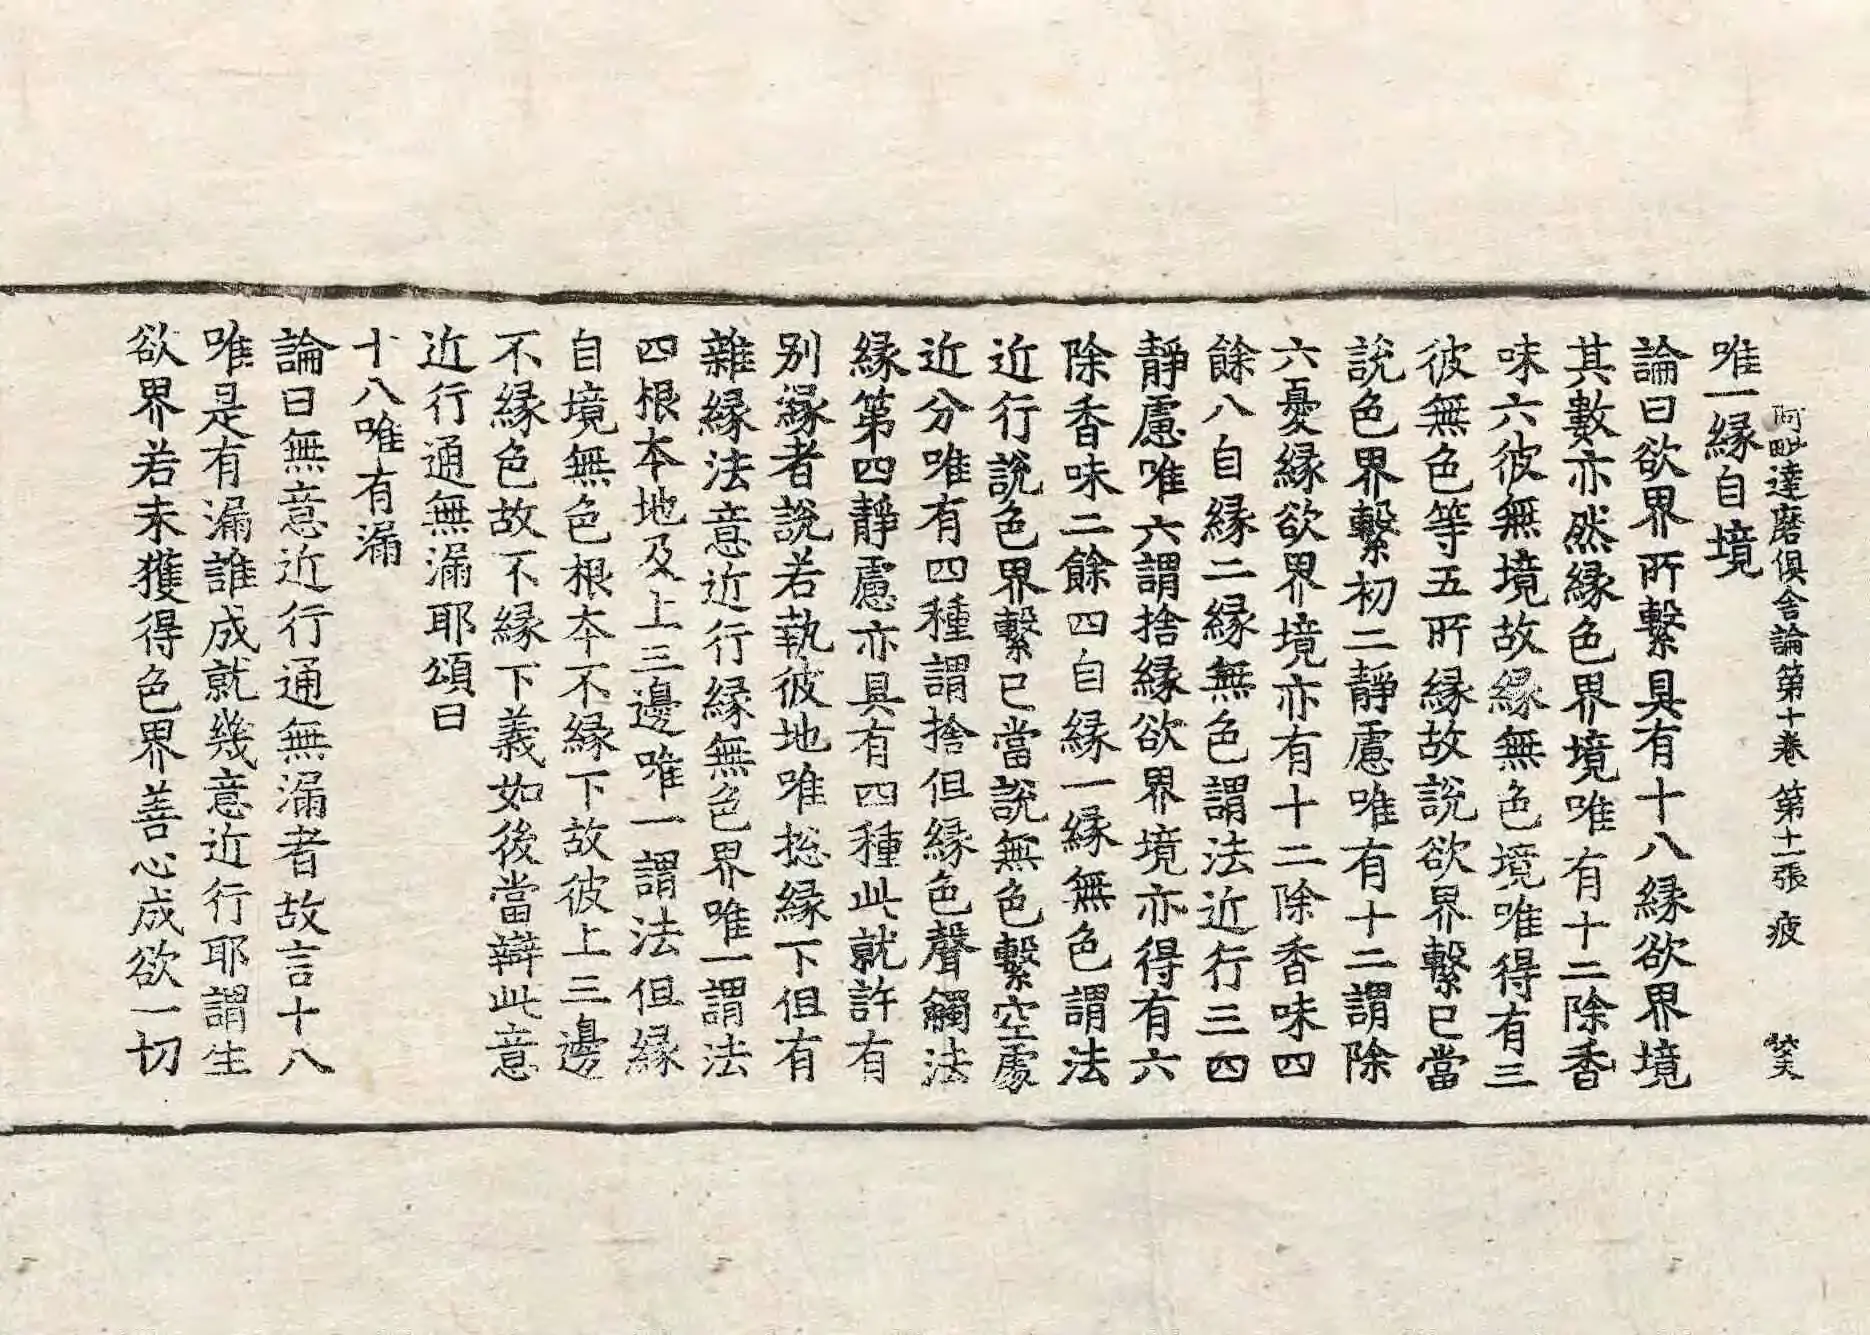 阿毗達磨俱舍論第十卷 第十一張 疲
唯一緣自境
論曰欲界所繫具有十八緣欲界境
其數亦然緣色界境唯有十二除香
味六彼無境故緣無色境唯得有三
彼無色等五所緣故說欲界繫已當
說色界繫初二靜慮唯有十二謂除
六憂緣欲界境亦有十二除香味四
餘八自緣二緣無色謂法近行三四
靜慮唯六謂捨緣欲界境亦得有六
除香味二餘四自緣一緣無色謂法
近行說色界繫已當說無色繫空處
近分唯有四種謂捨但緣色聲觸法
緣第四靜慮亦具有四種此就許有
別緣者說若執彼地唯捴緣下但有
雜緣法意近行緣無色界唯一謂法
四根本地及上三邊唯一謂法但緣
自境無色根本不緣下故彼上三邊
不緣色故不緣下義如後當辯此意
近行通無漏耶頌曰
十八唯有漏
論曰無意近行通無漏者故言十八
唯是有漏誰成就幾意近行耶謂生
欲界若未獲得色界善心成欲一切